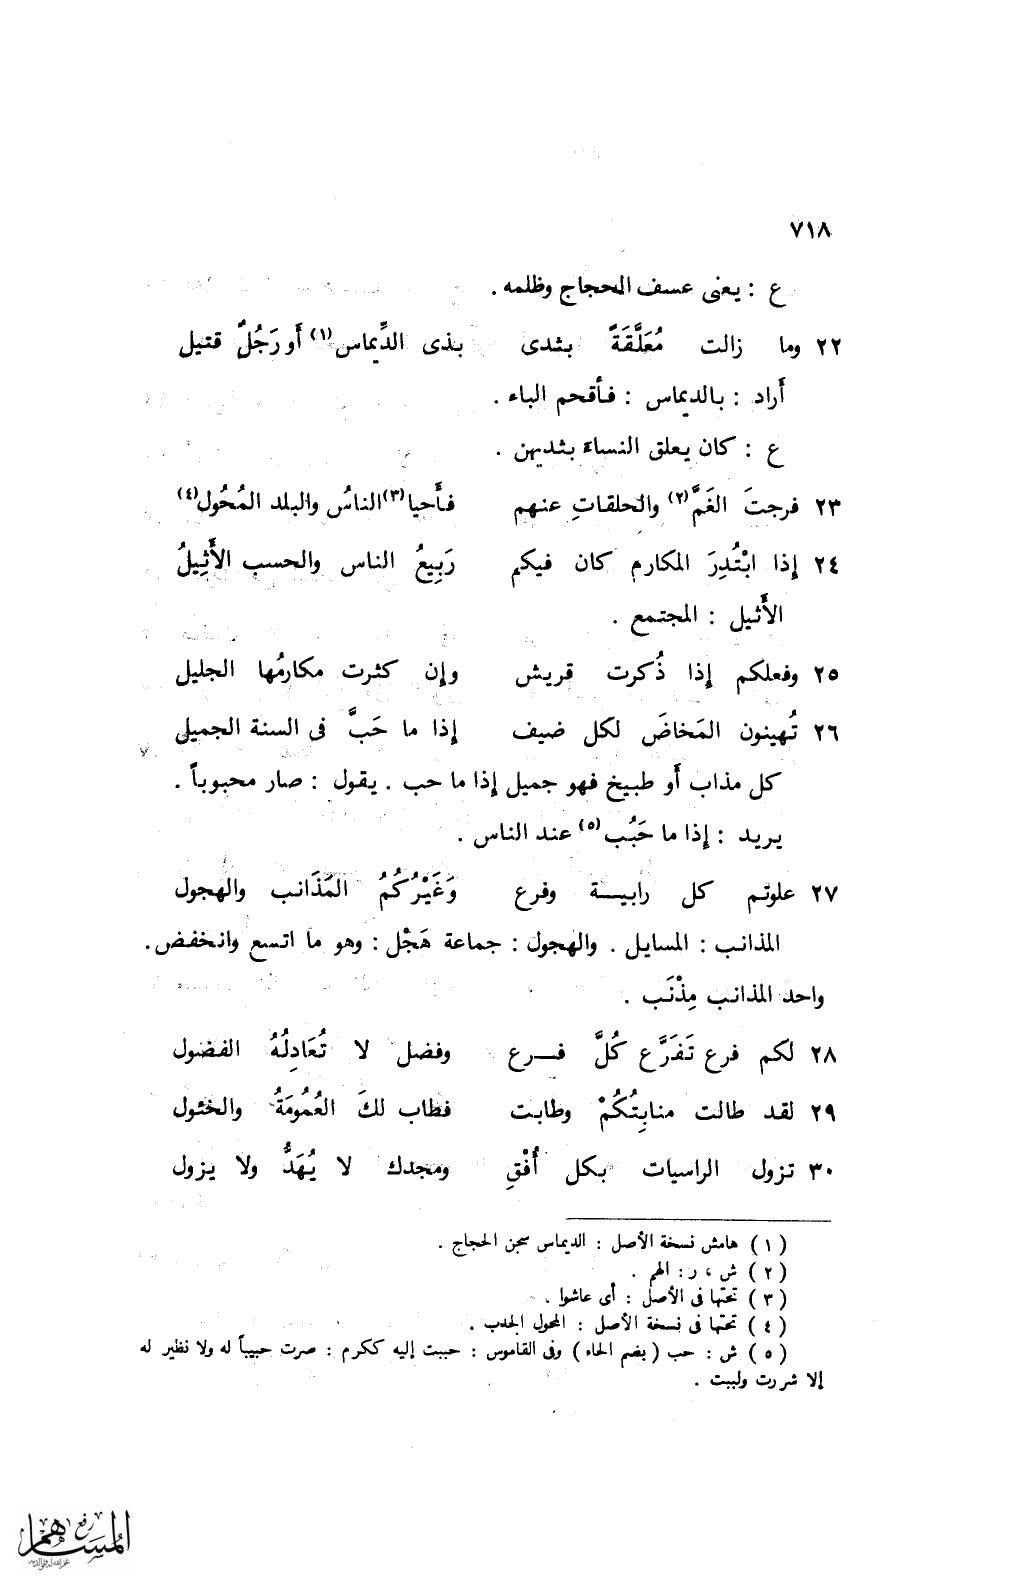 ٧١٨
ع : يعنى عسف الحجاج وظلمه .
٢٢ وما زالت مُعَلَّقَةً بثدى بذى الدِّيماس(١) أَو رَجُلٌ قتيل
أَراد : بالديماس : فأَقحم الباء .
ع : كان يعلق النساء بثديهن .
٢٣ فرجتَ الغَمَّ(٢) والحلقاتِ عنهم فأَحيا(٣)الناسُ والبلد المُحُول(٤)
٢٤ إذا ابْتُدِرَ المكارم كان فيكم رَبِيعُ الناس والحسب الأَثِيلُ
الأَثيل : المجتمع .
٢٥ وفعلكم إذا ذُكرت قريش وإن كثرت مكارمُها الجليل
٢٦ تُهينون المَخاضَ لكل ضيف إذا ما حَبَّ فى السنة الجميل
كل مذاب أَو طبيخ فهو جميل إذا ما حب . يقول : صار محبوباً .
يريد : إذا ما حَبُب(٥) عند الناس .
٢٧ علوتم كل رابيــة وفرع وَغَيْرُكُمُ المَذَانب والهجول
المذانب : المسايل . والهجول : جماعة هَجْل : وهو ما اتسع وانخفض .
واحد المذانب مِذْنَب .
٢٨ لكم فرع تَفَرَّع كُلَّ فــرع وفضل لا تُعَادِلُهُ الفضول
٢٩ لقد طالت منابِتُكُمْ وطابت فطاب لكَ العُمُومَةُ والخئول
٣٠ تزول الراسيات بكل أُفْقِ ومجدك لا يُهَدُّ ولا يزول
(١) هامش نسخة الأصل : الديماس سجن الحجاج .
(٢) ش ، ر : الهم .
(٣) تحتها فى الأصل : أى عاشوا .
(٤) تحتها فى نسخة الأصل : المحول الجدب .
(٥) ش : حب (بضم الحاء) وفى القاموس : حببت إليه ككرم : صرت حبيباً له ولا نظير له
إلا شررت ولببت .
رفع
المساهم